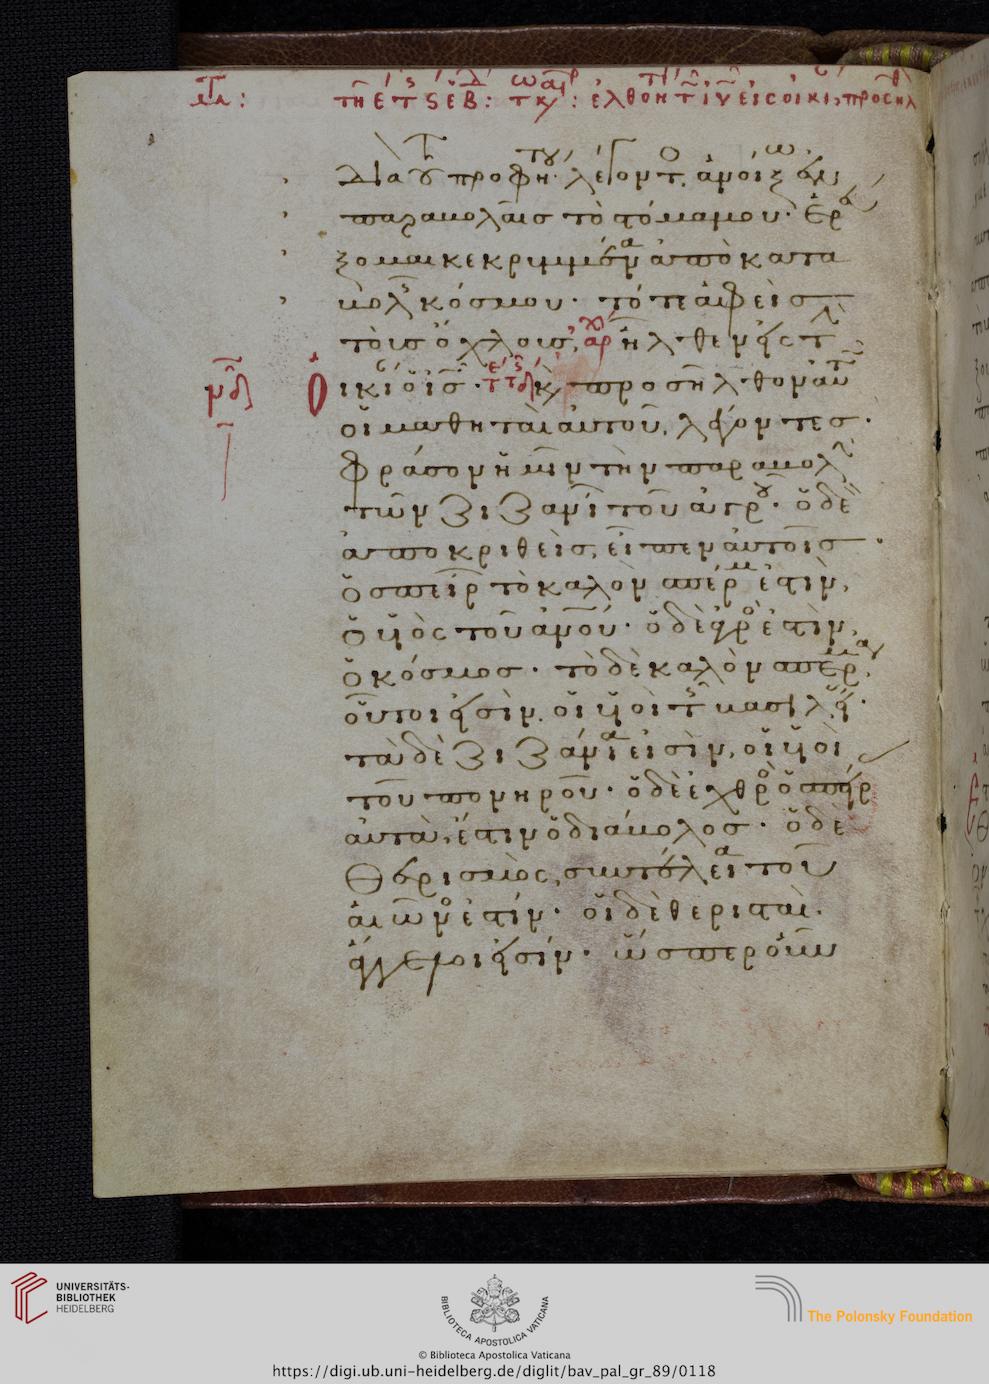 διὰ τοῦ προφήτου λέγοντος. ἀνοίξω ἐν
παραβολαῖς τὸ στόμα μου· ἐρεύ
ξομαι κεκρυμμένα ἀπὸ κατα
βολῆς κόσμου· τότε ἀφεὶς
τοὺς ὄχλους, ἦλθεν εἰς τ
οἰκίαν ὁ ἰς· κ προσῆλθον αὐτῶ
οἱ μαθηταὶ αὐτοῦ, λέγοντες·
φράσον ἡμῖν τὴν παραβολὴν
τῶν ζιζανίων τοῦ ἀγροῦ· ὁ δὲ
ἀποκριθεὶς, εἶπεν αὐτοῖς·
ὁ σπείρων τὸ καλὸν σπέρμα ἐστὶν,
ὁ υἱὸς τοῦ ἀνου· ὁ δὲ ἀγρὸς ἐστὶν,
ὁ κόσμος· τὸ δὲ καλὸν σπέρμα,
οὗτοι εἰσὶν, οἱ υἱοὶ τῆς βασιλείας·
τὰ δὲ ζιζάνια εἰσὶν, οἱ υἱοὶ
τοῦ πονηροῦ· ὁ δὲ ἐχθρὸς ὁ σπείρας
αὐτὰ, ἐστιν ὁ διάβολος· ὁ δὲ
θερισμὸς, συντέλεια τοῦ
αἰῶνος ἐστίν· οἱ δὲ θερισταὶ
ἄγγελοι εἰσίν· ὥσπερ οὖν
UNIVERSITÄTS-
BIBLIOTHEK
HEIDELBERG
BIBLIOTECA APOSTOLICA VATICANA
The Polonsky Foundation
© Biblioteca Apostolica Vaticana
https://digi.ub.uni-heidelberg.de/diglit/bav_pal_gr_89/0118